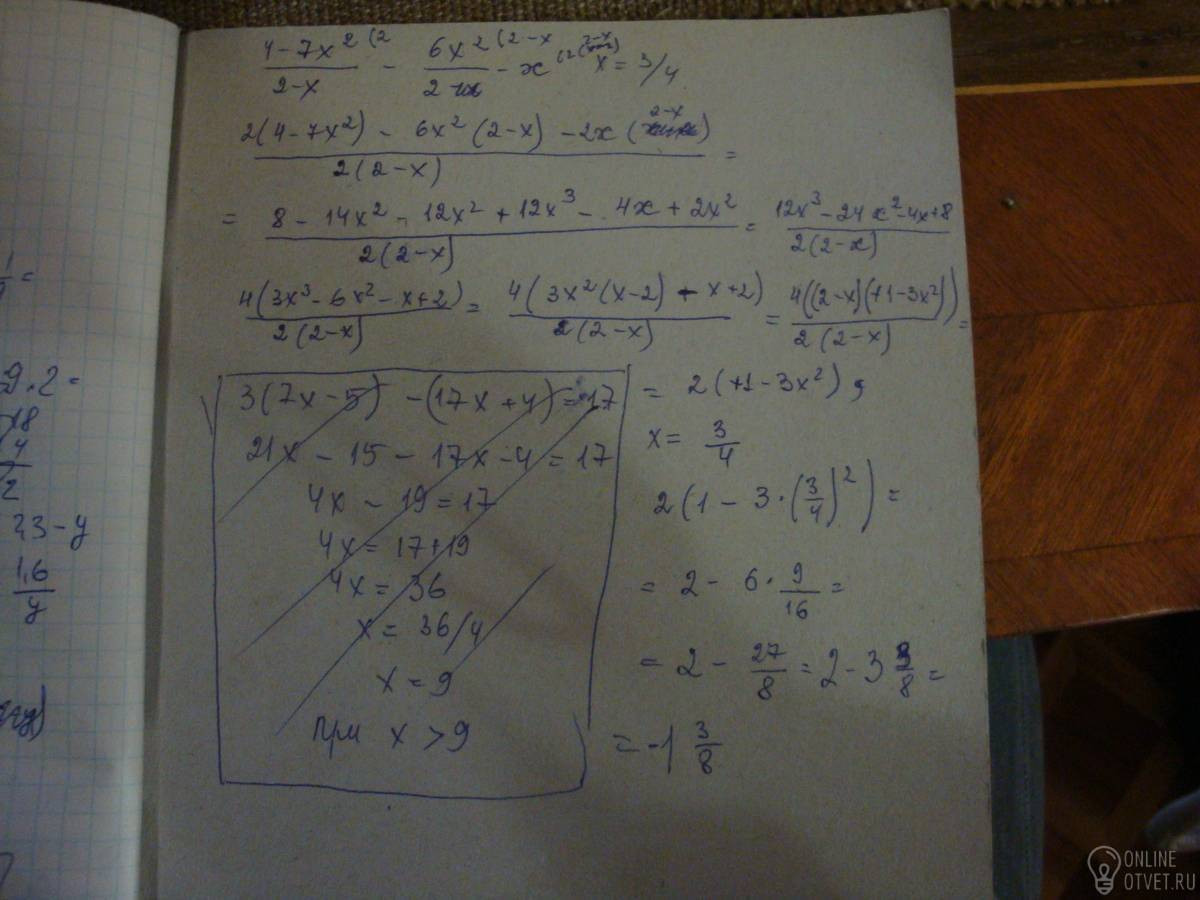 4-7x² (2 / 2-x - 6x² (2-x / 2 - x x = 3/4
2(4-7x²) - 6x² (2-x) - 2x (2-x) / 2(2-x) =
= 8 - 14x² - 12x² + 12x³ - 4x + 2x² / 2(2-x) = 12x³ - 24x² - 4x + 8 / 2(2-x)
4(3x³ - 6x² - x + 2) / 2(2-x) = 4(3x²(x-2) - x + 2) / 2(2-x) = 4((2-x)(+1-3x²)) / 2(2-x) =
3(7x-5) - (17x+4) = 17
21x - 15 - 17x - 4 = 17
4x - 19 = 17
4x = 17+19
4x = 36
x = 36/4
x = 9
При x > 9
= 2(+1-3x²),
x = 3/4
2(1 - 3·(3/4)²) =
= 2 - 6 · 9/16 =
= 2 - 27/8 = 2 - 3 3/8 =
= -1 3/8
9.2 =
18
4
2
23-y
1,6
y
ONLINE
OTVET.RU